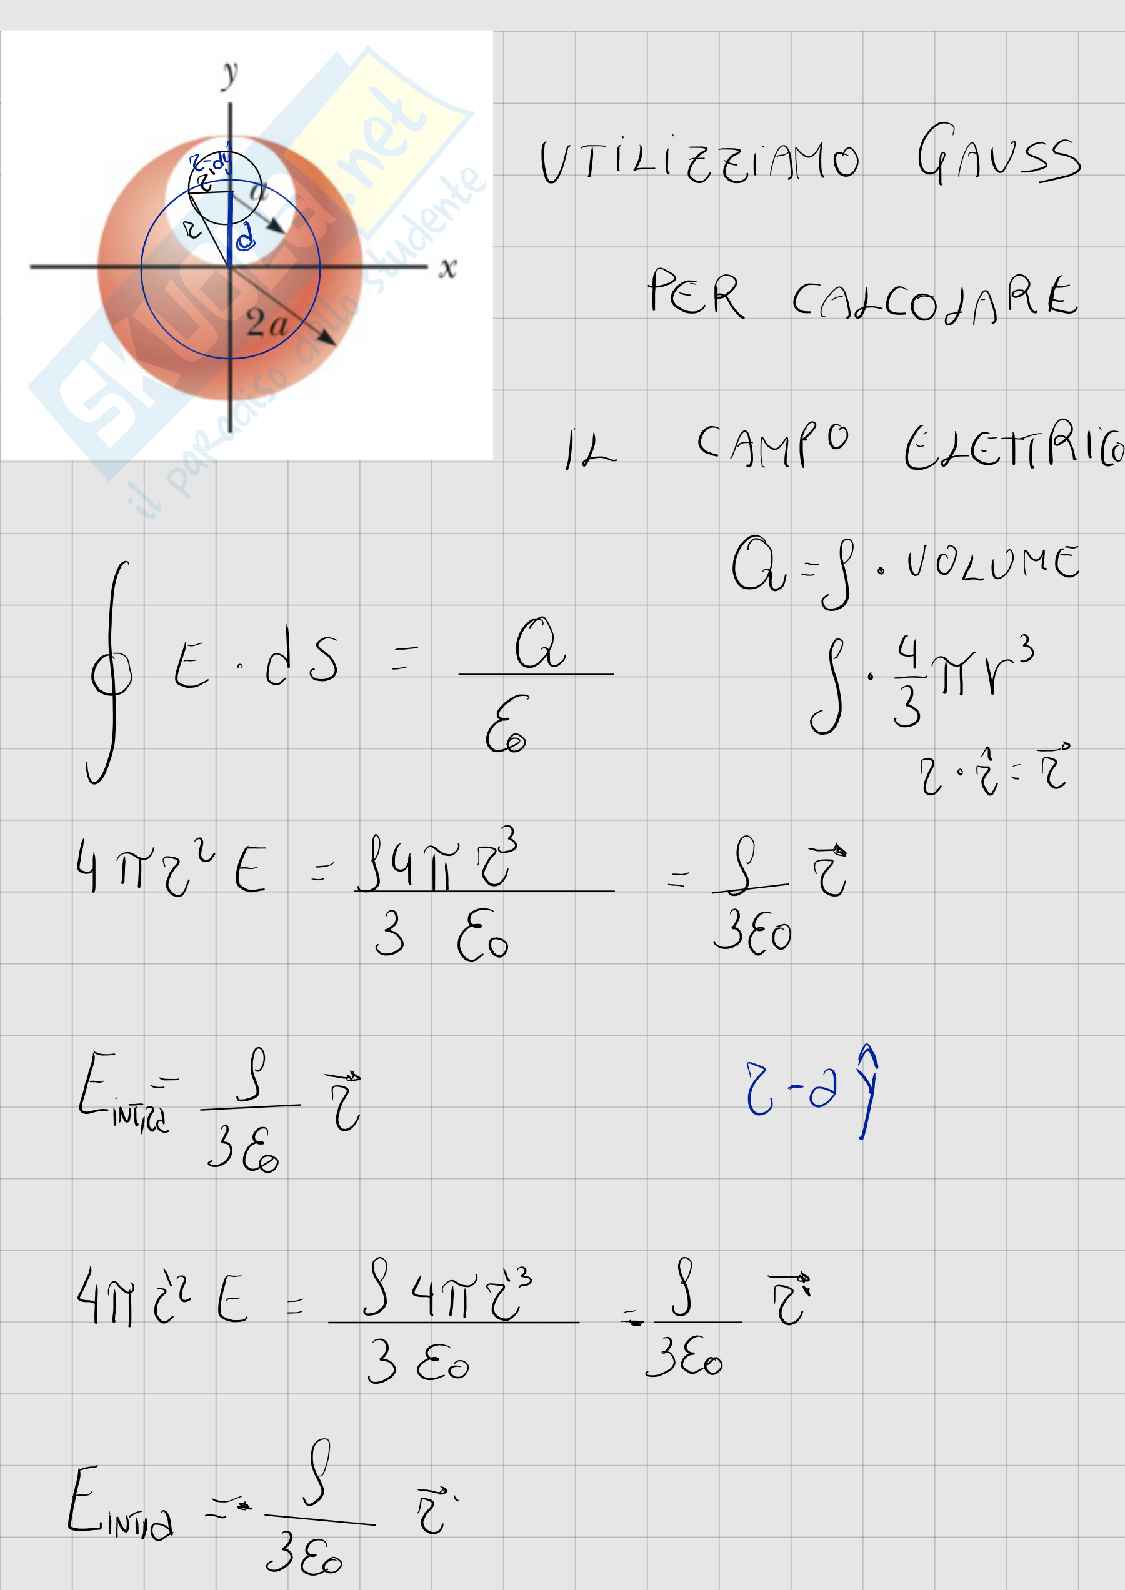 y
r-dŷ
r'
a
r
d
x
2a
SKUOLA.net
il paradiso dello studente
UTILIZZIAMO GAUSS
PER CALCOLARE
IL CAMPO ELETTRICO
Q = ρ · VOLUME
∮ E · dS = Q / ε₀
ρ · 4/3 π r³
r · r̂ = r⃗
4πr² E = ρ4πr³ / 3 ε₀ = ρ / 3ε₀ r⃗
E = ρ / 3ε₀ r⃗
r - a ŷ
4πr'² E = ρ 4πr'³ / 3 ε₀ = - ρ / 3ε₀ r⃗'
E = - ρ / 3ε₀ r⃗'